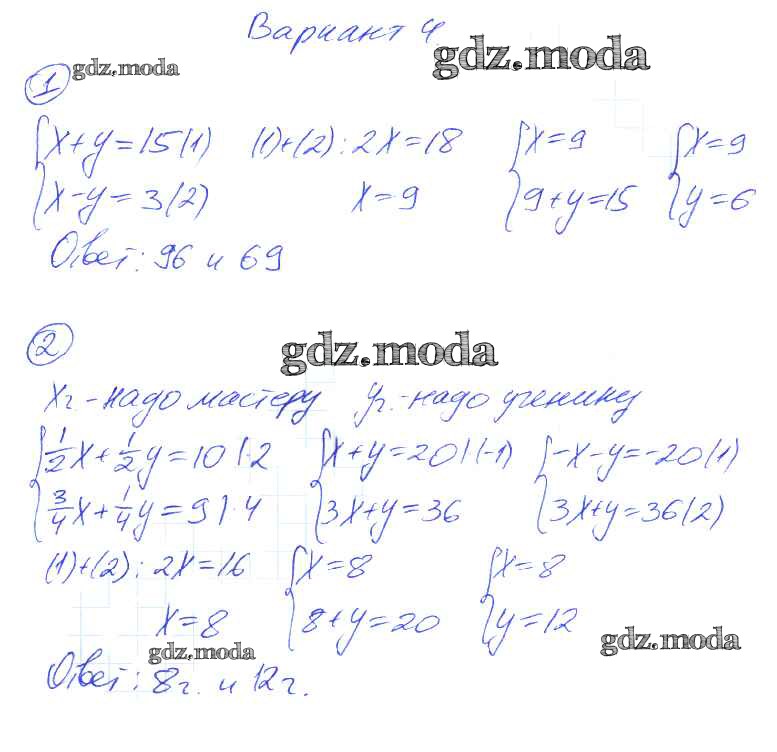 Вариант 4
gdz.moda
gdz.moda
1
x+y=15(1) (1)+(2): 2x=18 x=9 x=9
x-y=3(2) x=9 9+y=15 y=6
Ответ: 96 и 69
2
gdz.moda
Xг.-надо мастеру Yг.-надо ученику
1/2x+1/2y=10|·2 x+y=20|(-1) -x-y=-20(1)
3/4x+1/4y=9|·4 3x+y=36 3x+y=36(2)
(1)+(2): 2x=16 x=8 x=8
x=8 8+y=20 y=12
gdz.moda
gdz.moda
Ответ: 8г. и 12г.